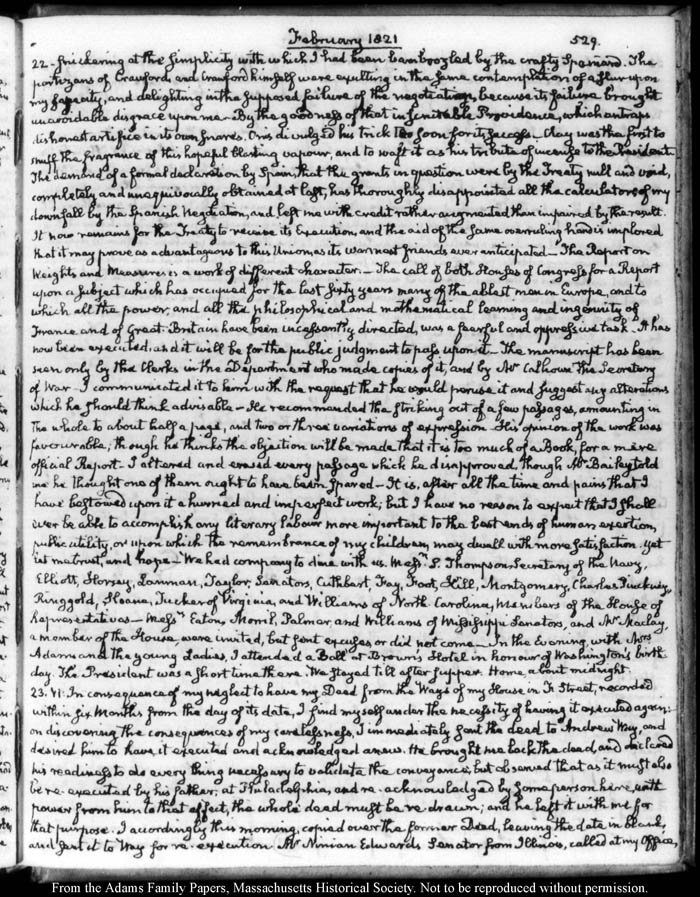 February 1821
529.
22- snickering at the simplicity with which I had been bamboozled by the crafty Spaniard. The
partizans of Crawford, and Crawford himself were exulting in the same contemplation of a slur upon
my sagacity, and delighting in the supposed failure of the negotiation, because its failure brought
unavoidable disgrace upon me- By the goodness of that inscrutable Providence, which entraps
dishonest artifice in its own snares, Onis divulged his trick too soon for its success- Clay was the first to
snuff the fragrance of this hopeful blasting vapour, and to waft it as his tribute of incense to the President
The demand of a formal declaration by Spain, that the grants in question were by the Treaty null and void,
completely and unequivocally obtained at last, has thoroughly disappointed all the calculators of my
downfall by the Spanish Negotiation, and left me with credit rather augmented than impaired by the result.
It now remains for the Treaty to receive its Execution, and the aid of the same overruling hand is implored
that it may prove as advantageous to this Union, as its warmest friends ever anticipated- The Report on
Weights and Measures is a work of different character.- The call of both Houses of Congress for a Report
upon a subject which has occupied for the last sixty years many of the ablest men in Europe, and to
which all the power, and all the philosophical and mathematical learning and ingenuity of
France and of Great-Britain have been incessantly directed, was a fearful and oppressive task- It has
now been executed, and it will be for the public judgment to pass upon it- The manuscript has been
seen only by the Clerks in the Department who made copies of it, and by Mr Calhoun the Secretary
of War- I communicated it to him with the request that he would peruse it and suggest any alterations
which he should think advisable- He recommended the striking out of a few passages, amounting in
the whole to about half a page, and two or three variations of expression- His opinion of the work was
favourable; though he thinks the objection will be made that it is too much of a Book, for a mere
official Report- I altered and erased every passage which he disapproved, though Mr Bailey told
me he thought one of them ought to have been spared- It is, after all the time and pains that I
have bestowed upon it a hurried and imperfect work; but I have no reason to expect that I shall
ever be able to accomplish any literary labour more important to the best ends of human exertion,
public utility, or upon which the remembrance of my children may dwell with more satisfaction. Yet
let me trust, and hope- We had company to dine with us. Messrs S. Thompson Secretary of the Navy,
Elliott, Horsey, Lanman, Taylor, Senators, Cuthbert, Fay, Foot, Hill, Montgomery, Charles Pinckney,
Ringgold, Sloane, Tucker of Virginia, and Williams of North Carolina, Members of the House of
Representatives- Messrs Eaton, Morril, Palmer, and Williams of Mississippi Senators, and Mr Maclay,
a member of the House, were invited, but sent excuses, or did not come- In the Evening, with Mrs
Adams and the young Ladies, I attended a Ball at Brown's Hotel in honour of Washington's birth
day. The President was a short time there. We stayed till after supper. Home about midnight
23. VI: In consequence of my neglect to have my Deed from the Ways of my House in F. Street, recorded
within six Months from the day of its date, I find myself under the necessity of having it executed again:
on discovering the consequences of my carelessness, I immediately sent the deed to Andrew Way, and
desired him to have it executed and acknowledged anew. He brought me back the deed, and declared
his readiness to do every thing necessary to validate the conveyance, but observed that as it must also
be re-executed by his father, at Philadelphia, and re-acknowledged by some person here, with
power from him to that effect, the whole deed must be re-drawn; and he left it with me for
that purpose. I accordingly this morning, copied over the former Deed, leaving the date in blank,
and sent it to Way for re-execution. Mr Ninian Edwards Senator from Illinois, called at my Office,
From the Adams Family Papers, Massachusetts Historical Society. Not to be reproduced without permission.